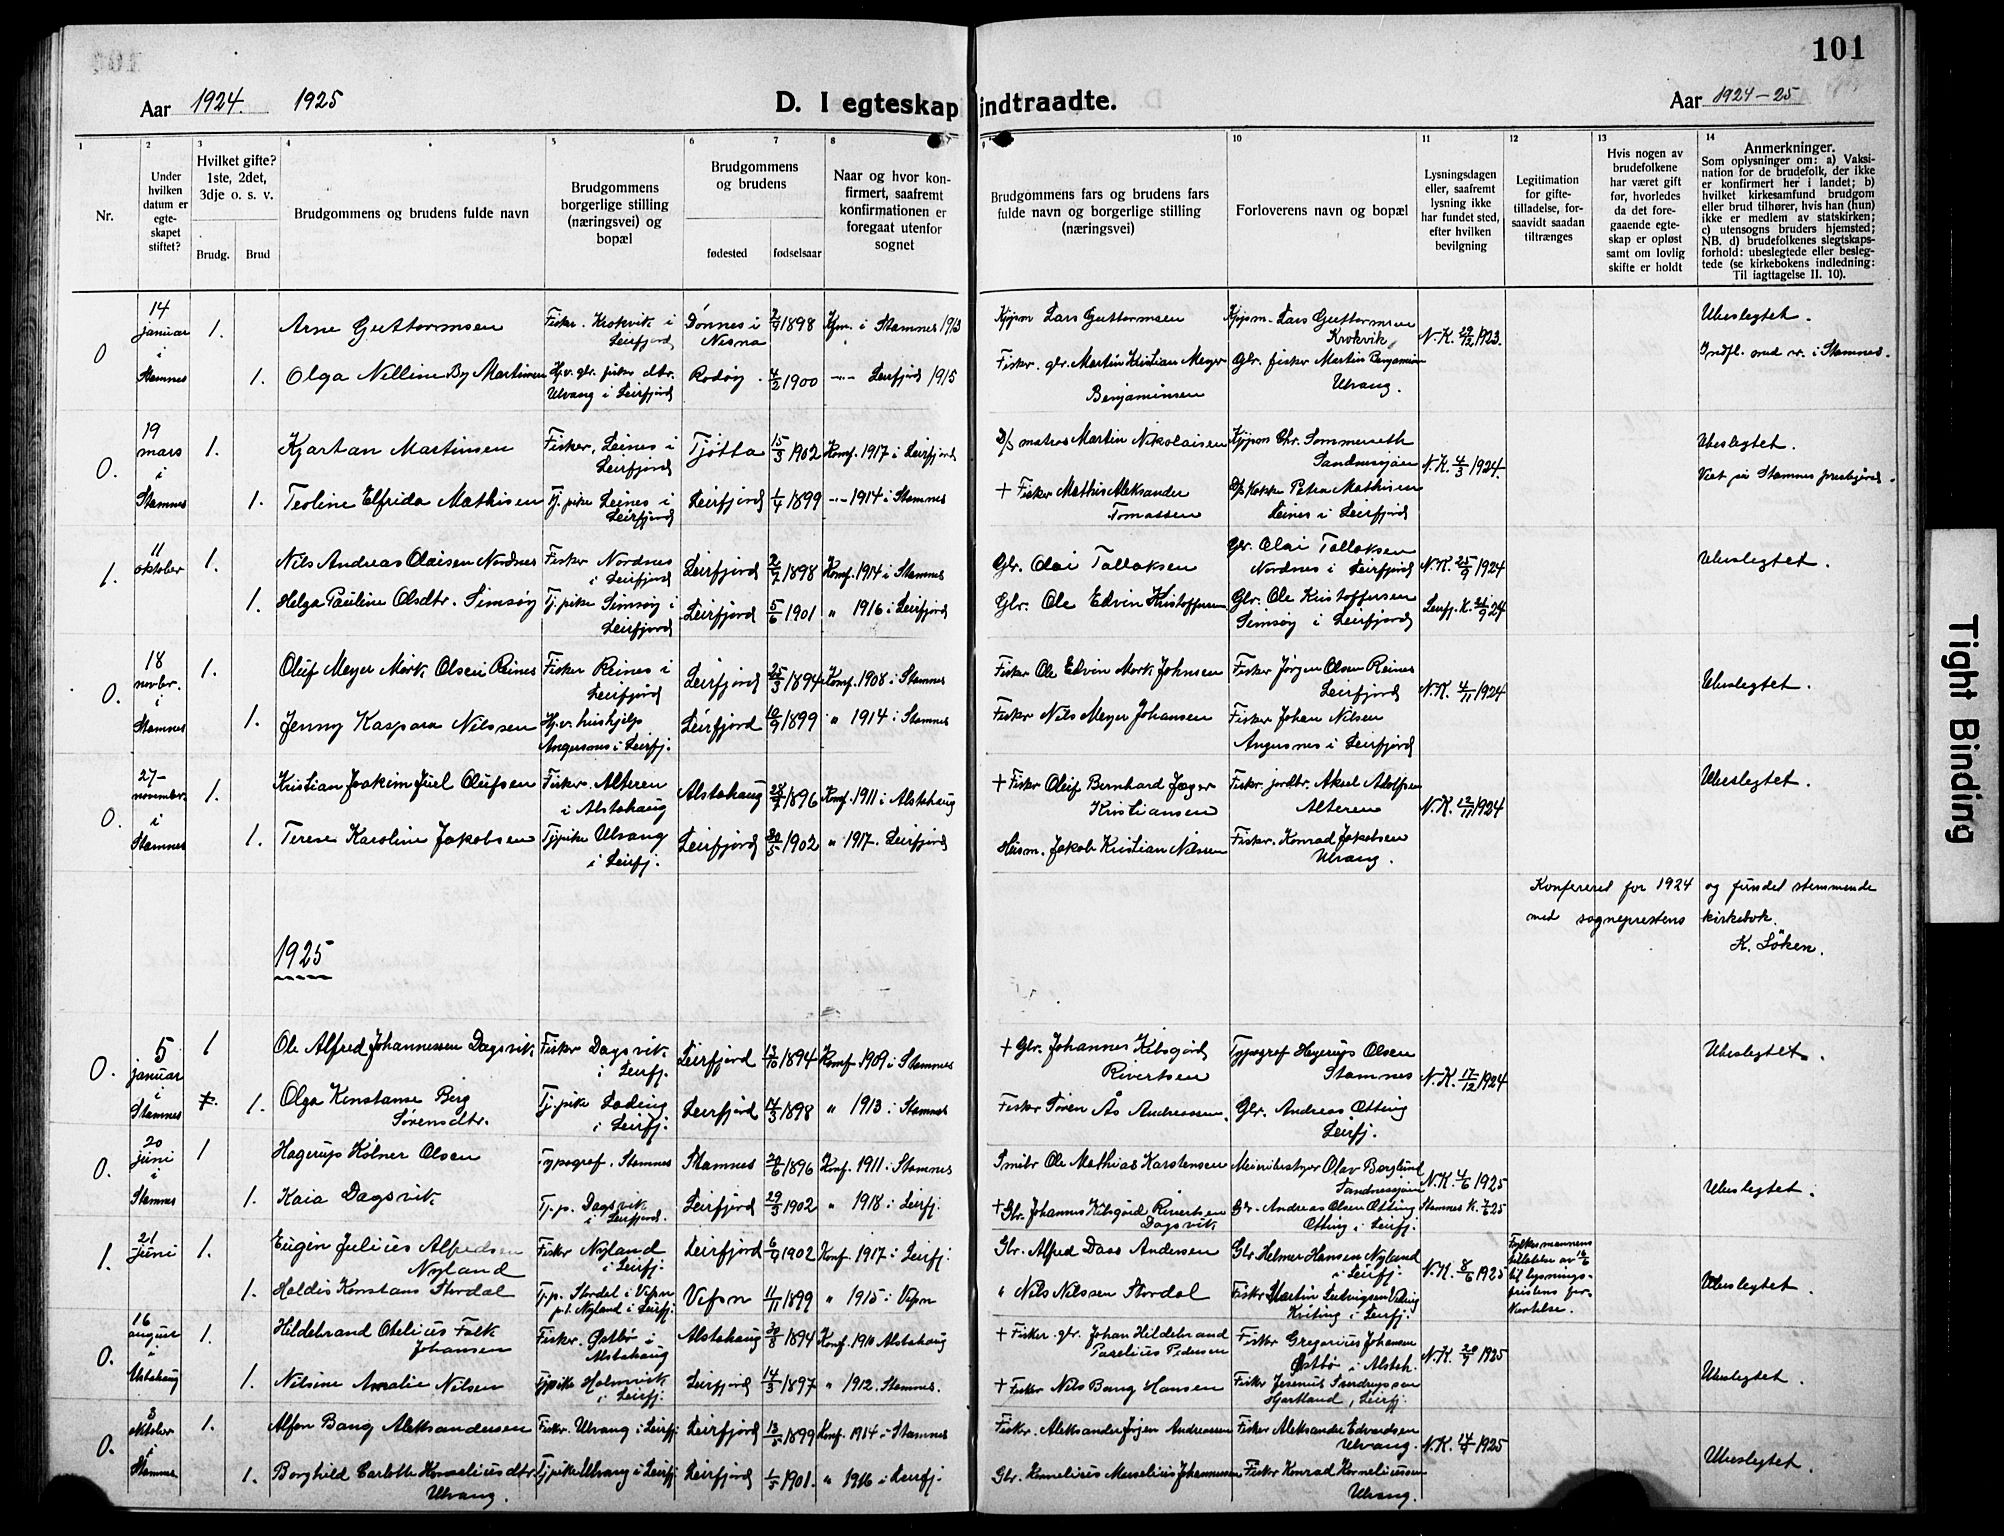 101
Aar 1924. 1925
D. I egteskap indtraadte.
Aar 1924-25
1 2 3 4 5 6 7 8 9 10 11 12 13 14
Nr.
Under hvilken datum er egteskapet stiftet?
Hvilket gifte? 1ste, 2det, 3dje o. s. v.
Brudg. Brud
Brudgommens og brudens fulde navn
Brudgommens borgerlige stilling (næringsvei) og bopæl
Brudgommens og brudens
fødested fødselsaar
Naar og hvor konfirmert, saafremt konfirmationen er foregaat utenfor sognet
Brudgommens fars og brudens fars fulde navn og borgerlige stilling (næringsvei)
Forloverens navn og bopæl
Lysningsdagen eller, saafremt lysning ikke har fundet sted, efter hvilken bevilgning
Legitimation for giftetilladelse, forsaavidt saadan tiltrænges
Hvis nogen av brudefolkene har været gift før, hvorledes da det foregaaende egteskap er opløst samt om lovlig skifte er holdt
Anmerkninger.
Som oplysninger om: a) Vaksination for de brudefolk, der ikke er konfirmert her i landet; b) hvilket kirkesamfund brudgom eller brud tilhører, hvis han (hun) ikke er medlem av statskirken; c) utensogns bruders hjemsted; NB. d) brudefolkenes slegtskapsforhold: ubeslegtede eller beslegtede (se kirkebokens indledning: Til iagttagelse II. 10).
0 14 januar i Stamnes 1. Arne Guttormsen Fisker. Krokvik i Leirfjord Dønnes i Nesna 1898 Kfm. i Stamnes 1913 Kjøpm Lars Guttormsen Kjøpm. Lars Guttormsen Krokvik N.K. 29/12 1923. Ubeslegtet.
1. Olga Nelline By Martinsen Ulvang i Leirfjord Rødøy 4/2 1900 Leirfjord 1915 Fisker. gbr. Martin Kristian Meyer Benjaminsen Gbr. fisker Martin Benjaminsen Ulvang. i Stamnes.
0. 19 mars i Stamnes 1. Kjartan Martinsen Fisker, Leines i Leirfjord Tjøtta 15/3 1902 Konf. 1917 i Leirfjord D/s matros Martin Nikolaisen Kjøpm Chr. Sommerseth Sandnessjøen N.K. 4/3 1924. Ubeslegtet.
1. Teoline Elfrida Mathisen Tj. pike Leines i Leirfjord Leirfjord 1/4 1899 1914 i Stamnes + Fisker Mathis Aleksander Tomassen Petra Mathisen Leines i Leirfjord Viet på Stamnes prestegård.
1. 11 oktober 1. Nils Andreas Olaisen Nordnes Fisker Nordnes i Leirfjord Leirfjord 1898 Konf. 1914 i Stamnes Gbr. Olai Tollaksen Gbr. Olai Tollaksen Nordnes i Leirfjord N.K. 25/9 1924 Ubeslegtet.
1. Helga Pauline Olsdtr. Simsøy Tj. pike Simsøy i Leirfjord Leirfjord 5/6 1901 " 1916 i Leirfjord Gbr. Ole Edvin Kristoffersen Gbr. Ole Kristoffersen Simsøy i Leirfjord Leirfj. K. 21/9 24
0. 18 novbr. i Stamnes 1. Oluf Meyer Mørk Olsen Reines Fisker Reines i Leirfjord Leirfjord 25/3 1894 Konf. 1908 i Stamnes Fisker Ole Edvin Mørk Johnsen Fisker Jørgen Olsen Reines Leirfjord N.K. 4/11 1924 Ubeslegtet.
1. Jenny Kaspara Nilssen Hj.v. hushjelp Angersnes i Leirfj. Leirfjord 10/9 1899 " 1914 i Stamnes Fisker Nils Meyer Johansen Fisker Johan Nilsen Angersnes i Leirfjord
0. 27- november. i Stamnes 1. Kristian Joakim Juel Olufsen Fisker. Alteren i Alstahaug Alstahaug 1896 Konf. 1911 i Alstahaug + Fisker Oluf Bernhard Jæger Kristiansen Fisker jordbr. Aksel Adolfsen Alteren N.K. 12/11 1924 Ubeslegtet.
1. Terese Karoline Jakobsen Tj.pike Ulvang i Leirfj. Leirfjord 30/5 1902 " 1917. Leirfjord Husm. Jakob Kristian Nilssen Fisker. Konrad Jakobsen Ulvang.
Konfereret for 1924 og fundet stemmende
med sogneprestens kirkebok.
K. Söken.
1925
0. 5 januar i Stamnes 1 Ole Alfred Johannessen Dagsvik Fisker Dagsvik i Leirfj. Leirfjord 13/10 1894 Konf. 1909 i Stamnes + Gbr. Johannes Kibsgård Rivertsen Typograf Hagerup Olsen Stamnes N.K. 17/12 1924 Ubeslegtet.
1. Olga Konstanse Berg Sørensdtr. Tj. pike Løding i Leirfj. Leirfjord 1898 " 1913 i Stamnes Fisker Søren Ås Andreassen. Gbr. Andreas Otting Leirfj.
0. 20 juni i Stamnes 1 Hagerup Kölner Olsen Typograf. Stamnes Stamnes 1896 Konf. 1911 i Stamnes Smibr Ole Mathias Karstensen Meieribestyrer Olav Berglund Sandnessjøen N.K. 4/6 1925 Ubeslegtet.
1. Kaia Dagsvik Tj. p. Dagsvik i Leirfjord. Leirfjord 29/3 1902 " 1918 i Leirfj. + Gbr. Johannes Kibsgård Rivertsen Dagsvik Gbr. Andreas Olsen Otting Otting i Leirfj. Stamnes K. 7/6 25
1. 21 juni 1. Eugen Julius Alfredsen Nyland Fisker Nyland i Leirfj. Leirfjord 1902 Konf. 1917 i Leirfj. Gbr. Alfred Daas Andersen Gbr Helmer Hansen Nyland i Leirfj. N.K. 8/6 1925 Fylkesmannens tillatelse av 16/6 til lysningsfristens forkortelse. Ubeslegtet.
1. Haldis Konstans Stordal Tj.p. Stordal i Vefsn p.t. Nyland i Leirfj. Vefsn 11/11 1899 " 1915 i Vefsn " Nils Nilssen Stordal Fisker Martin Ludvigsen i Leirfj.
0. 16 august i Alstahaug 1. Hildebrand Obelius Falk Johansen Fisker. Østbø i Alstahaug Alstahaug 30/8 1894 Konf. 1910 Alstahaug + Fisker. gbr. Johan Hildebrand Parelius Pedersen Fisker Gregorius Johansen Østbø i Alsteh. N.K. 1925 Ubeslegtet.
1. Nilsine Amalie Nilsen Tj.pike Holmvik i Leirfj. Leirfjord 14/3 1897 " 1912. Stamnes. + Fisker Nils Bang Hansen Fisker Hjartland, Leirfj.
0. 3 oktober i Stamnes 1. Alfon Bang Aleksandersen Fisker. Ulvang i Leirfj. Leirfjord 13/5 1899 Konf. 1914 i Stamnes Fisker. Aleksander Jørgen Andreassen Fisker Aleksander Edvardsen Ulvang. N.K. 1925 Ubeslegtet.
1. Borghild Carlotte Korneliusdtr. Ulvang. Tj.pike Ulvang i Leirfj. Leirfjord 1901. " 1916 i Leirfj. Gbr. Kornelius Marselius Johannessen Fisker Konrad Korneliussen Ulvang.
Tight Binding